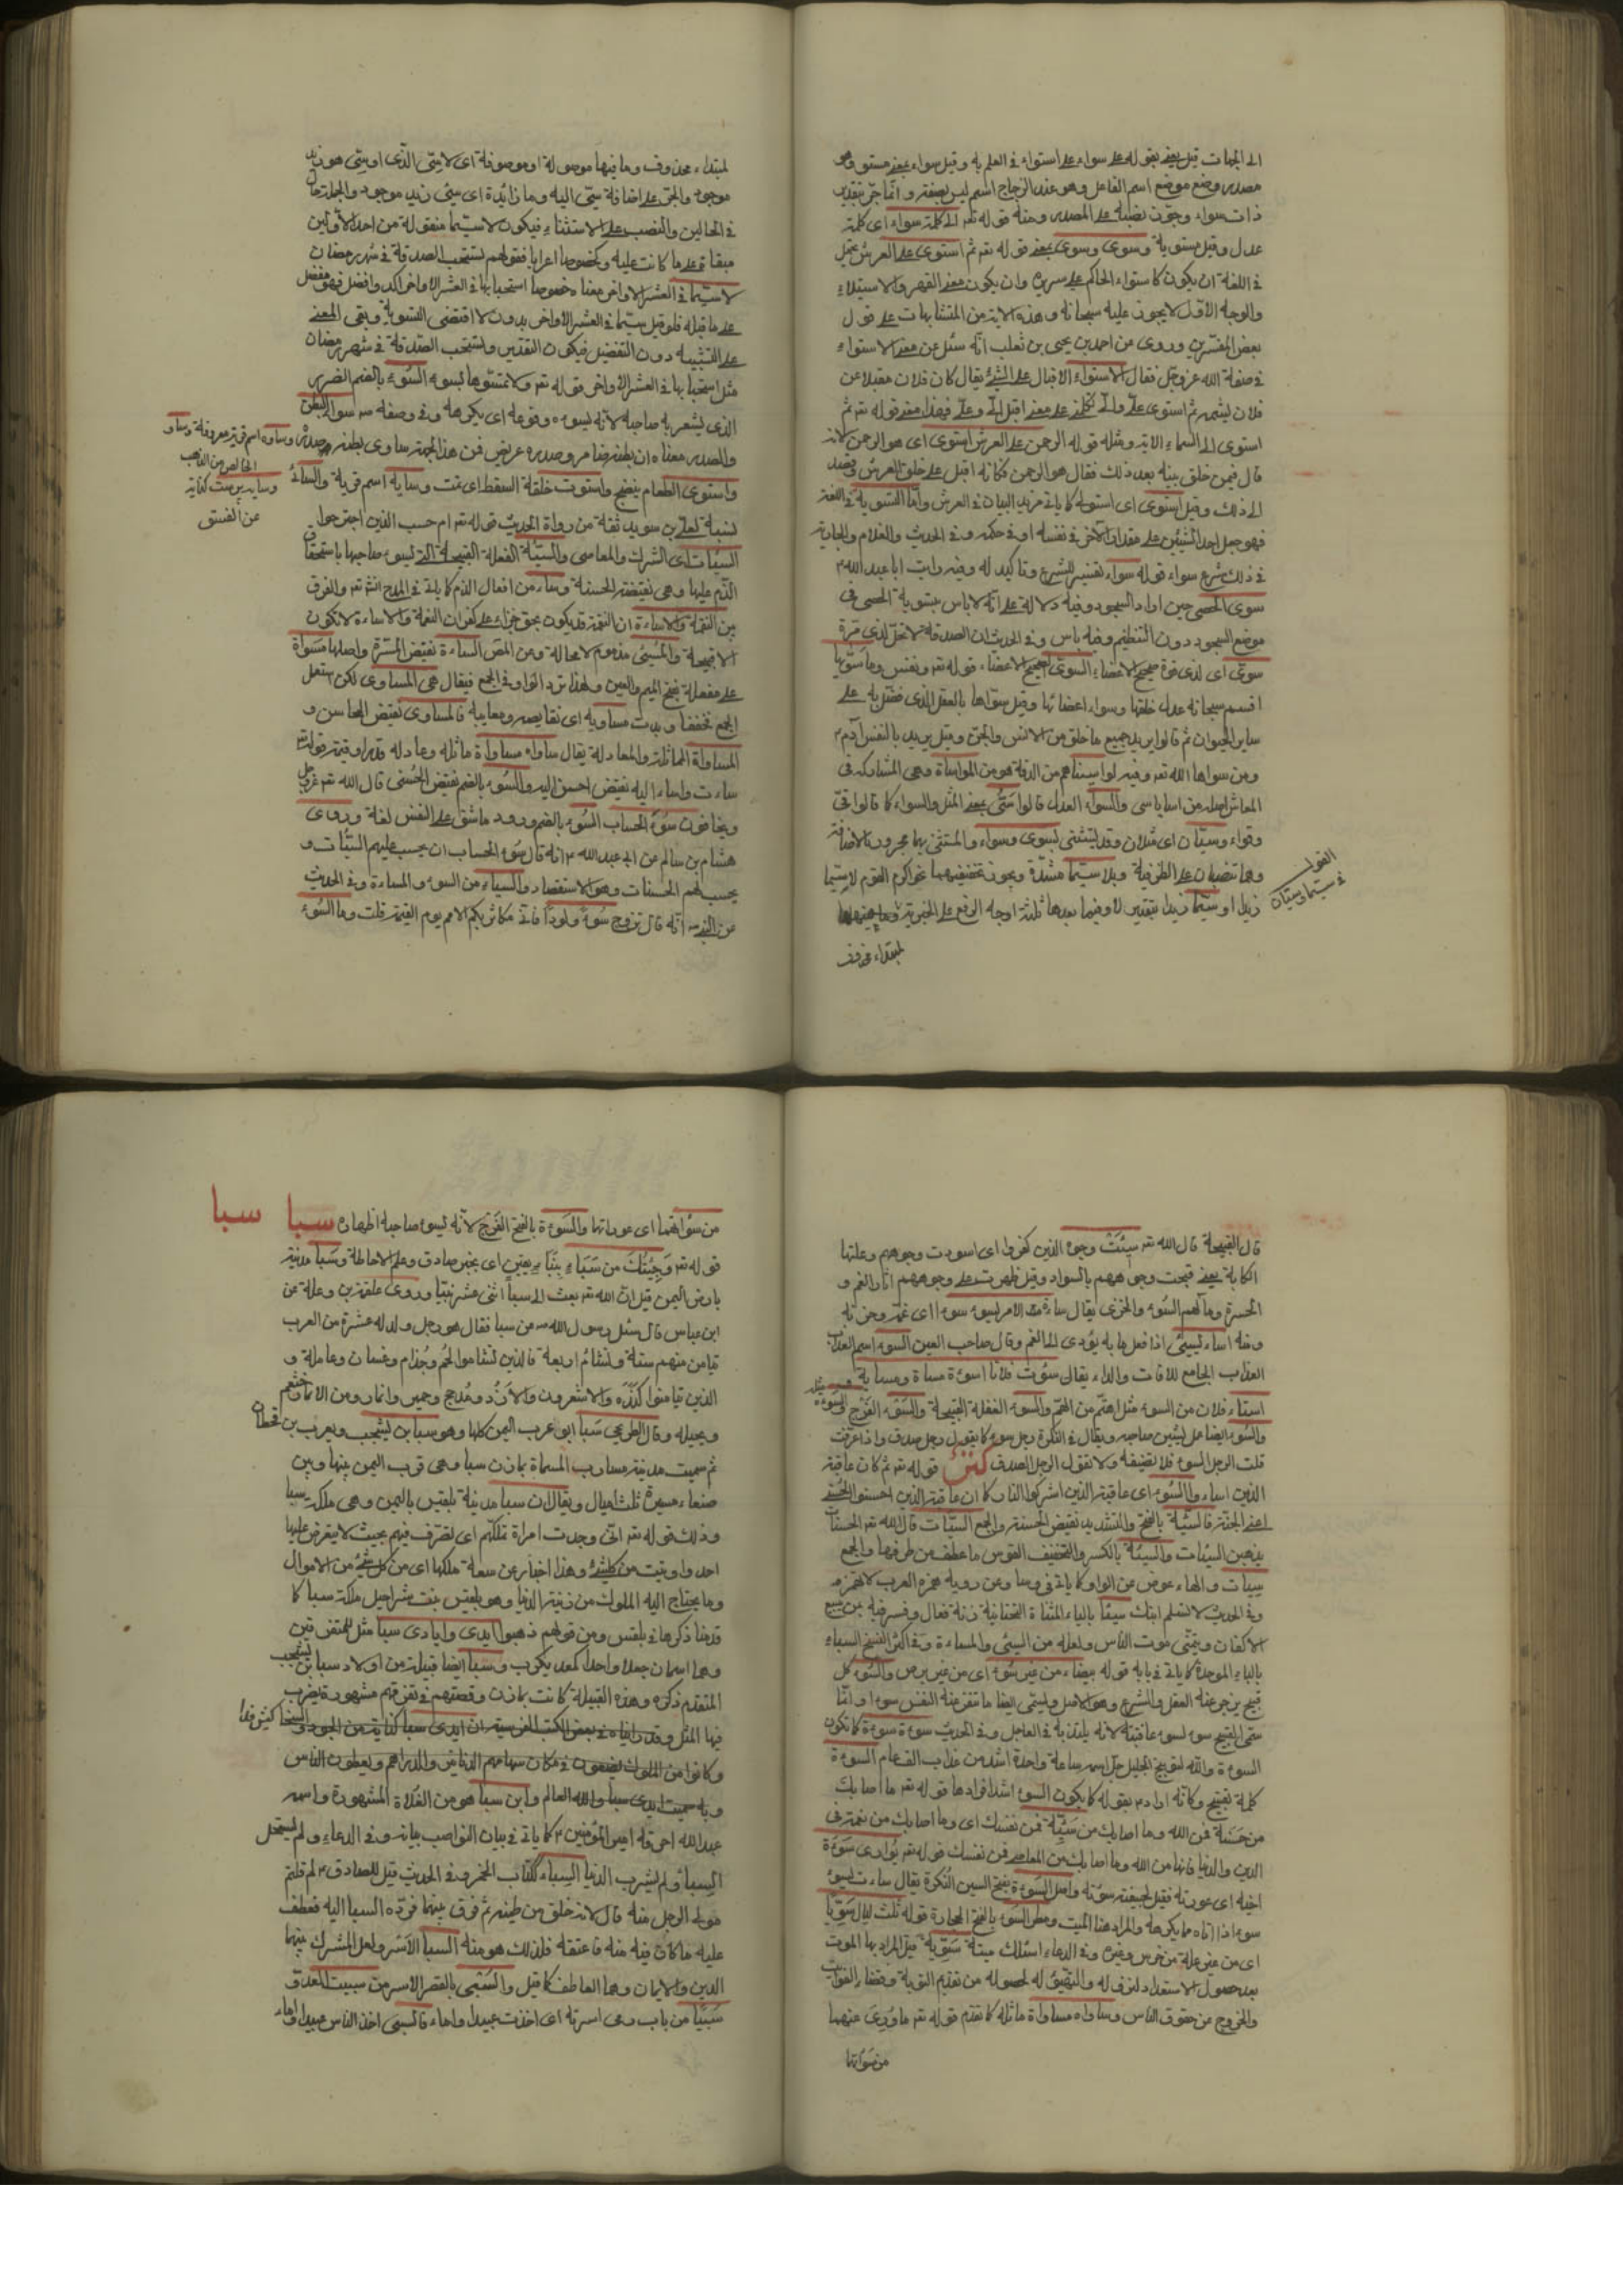 الى الجهات قيل يعنى بقوله على سواء على استواء فى العلم به وقيل سواء بمعنى مستو وهو
مصدر وضع موضع اسم الفاعل وهو عند الزجاج اسم ليس بصفة وانما جر بتقدير
ذات سواء ويجوز نصبه على المصدر ومنه قوله تعه الى كلمة سواء اى كلمة
عدل وقيل مستوية وسوى وسوى بمعنى قوله تعه ثم استوى على العرش يحتمل
فى اللغة ان يكون كاستواء الحاكم على سريره وان يكون معنى القهر والاستيلاء
والوجه الاول لا يجوز عليه سبحانه وهذه الاية من المتشابهات على قول
بعض المفسرين وروى عن احمد بن يحيى بن ثعلب انه سئل عن معنى الاستواء
فى صفة الله عز وجل فقال الاستواء الاقبال على الشئ يقال كان فلان مقبلا عن
فلان يشتمه ثم استوى على والى يكلمنى على معنى اقبل الى وعلى فهذا معنى قوله تعه ثم
استوى الى السماء الاية ومثله قوله الرحمن على العرش استوى اى هو الرحمن لانه
قال فيمن خلق بينه بعد ذلك فقال هو الرحمن فكانه اقبل على خلق العرش وقصد
الى ذلك وقيل استوى اى استولى كما ياتى مزيد البيان فى العرش واما التسوية فى اللغة
فهو جعل احد الشيئين على مقدار الآخر فى نفسه او فى حكمه وفى الحديث والغلام والجارية
فى ذلك شرع سواء قوله سواء تفسير للشرع وتاكيد له وفيه رايت ابا عبد الله ع
سوى الحصى حين اراد السجود وفيه دلالة على انه لا باس بتسوية الحصى فى
موضع السجود دون التنظيم وفيه باس وفى الحديث ان الصدقة لا تحل لذى مرة
سوى اى لذى قوة صحيح الاعضاء السوى الصحيح الاعضاء قوله تعه ونفس وما سويها
اقسم سبحانه عدل خلقها وسواء اعضائها وقيل سواها بالعقل الذى فضل به على
ساير الحيوان ثم قالوا يريد جميع ما خلق من الانس والجن وقيل يريد بالنفس آدم ع
ومن سواها الله تعه وفيه لو اسيناهم من الدفة هو من المواساة وهى المشاركة فى
المعاش اصله من اسا ياسى والسواء العدل قالوا سى بمعنى المثل والسواء كما قالوا قى
وقواء وسيان اى مثلان وقد يستثنى بسوى وسواء والمستثنى بهما مجرور بالاضافة
وهما تنصبان على الظرفية وبلا سيما مشددة ويجوز تخفيفهما نحو اكرم القوم لا سيما
زيد او سيما زيد بتقدير لا وفيما بعدها ثلثة اوجه الرفع على الخبرية
لمبتداء محذوف
القول
فى سيما وسيان
لمبتداء محذوف وما فيها موصولة او موصوفة اى لا سى الذى او سى هو زيد
موجود والجر على اضافة سى اليه وما زائدة اى سى زيد موجود والجملة حال
فى الحالين والنصب على الاستثناء فيكون لا سيما منقولة من احد الاولين
مبقاة على ما كانت عليه وكخصوصا اعرابا فقولهم تستحب الصدقة فى شهر رمضان
لا سيما فى العشر الاواخر معناه خصوصا استحبابها فى العشر الاواخر اكد وافضل فهو مفضل
على ما قبله فلو قيل سيما فى العشر الاواخر بدون لا اقتضى التسوية وبقى المعنى
على التشبيه دون التفضيل فيكون التقدير وتستحب الصدقة فى شهر رمضان
مثل استحبابها فى العشر الاواخر قوله تعه ولا تمسوها بسوء السوء بالضم الضرر
الذى يشعر به صاحبه لانه يسوءه وقوعه اى يكرهه وفى وصفه ص سواء البطن
والصدر معناه ان بطنه ضامر وصدره عريض فمن هذا الجهة ساوى بطنه صدره
واستوى الطعام نضج واستوت خلقة السقط اى تمت وساية اسم قرية والسائى
نسبة لعلى بن سويد ثقة من رواة الحديث قوله تعه ام حسب الذين اجترحوا
السيئات اى الشرك والمعاصى والسيئة الفعلة القبيحة التى يسوء صاحبها باستحقاق
الذم عليها وهى نقيضة الحسنة وساء من افعال الذم كما ياتى فى المدح انش تعه والفرق
بين النقمة والاساءة ان النقمة قد يكون بحق جزاء على كفران النعمة والاساءة لا تكون
الا قبيحة والمسيئ مذموم لا محالة ومن المص المساءة نقيض المسرة واصلها مسوأة
على مفعلة بفتح الميم والعين ولهذا ترد الواو فى الجمع فيقال هى المساوى لكن استعمل
الجمع مخففا وبدت مساويه اى نقايصه ومعايبه فالمساوى نقيض المحاسن و
المساواة المماثلة والمعادلة يقال ساواه مساواة ماثله وعادله قدرا وقيمة
ساءت واساء اليه نقيض احسن اليه والسوء بالضم نقيض الحسنى قال الله تعه عز وجل
ويخافون سوء الحساب السوء بالضم ورود ما شق على النفس لغة وروى
هشام بن سالم عن ابى عبد الله ع انه قال سوء الحساب ان يحسب عليهم السيئات و
يحسب لهم الحسنات وهو الاستقصاء والسياء من السوء والمساءة وفى الحديث
عن النبى ص انه قال تزوج سوءة ولودا فانى مكاثر بكم الامم يوم القيمة قلت وما السوء
وساوه اسم قرية معروفة وساو
الخالص من الذهب
عن الفستق
قال القبيحة قال الله تعه سيئت وجوه الذين كفروا اى اسودت وجوههم وعلتها
الكابة يعنى قبحت وجوههم بالسواد وقيل ظهرت على وجوههم آثار الغم و
الحسرة ومالهم السوء والخزى يقال ساءه الامر يسوء سوءا اى غمه وحزنه
ومنه اساء يسيئ اذا فعل ما به يؤدى الى الغم وقال صاحب العين السوء اسم العذاب
العذاب الجامع للآفات والداء يقال سؤت فلانا اسوءه مساءة ومساية
استاء فلان من السوء مثل اهتم من الهم والسوء الفعلة القبيحة والسوء الفرج والسوءة
والسوء ايضا عمل يشين صاحبه ويقال فى النكرة رجل سوء كما يقول رجل صدق واذا عرفت
قلت الرجل السوء فلا تضيفه ولا تقول الرجل الصدق قوله تعه ثم كان عاقبة
الذين اساءوا السوء اى عاقبة الذين اشركوا النار كما ان عاقبة الذين احسنوا الحسنى
اعنى الجنة فالسيئة بالفتح والتشديد نقيض الحسنة والجمع السيئات قال الله تعه الحسنات
يذهبن السيئات والسيئة بالكسر والتخفيف القوس ما عطف من طرفيها والجمع
سيئات والهاء عوض عن الواو كما ياتى فى وسا وعن روبة همزه العرب لا تهمزه
وفى الحديث لا تسلم ابنك سيئا بالياء المثناة التحتانية زنة فعال وفسر فيه بمن يبيع
الاكفان ويتمنى موت الناس ولعله من السيئ والمساءة وفى اكثر النسخ السباء
بالباء الموحدة كما ياتى فى بابه قوله بيضاء من غير سوء اى من غير برص والسوء كل
قبيح يزجر عنه العقل والشرع وهو الاصل ويسمى ايضا ما تنفر عنه النفس سوءا وانما
سمى القبيح سوء لسوء عاقبته لانه يلتذ به فى العاجل وفى الحديث سوءة سوءة كما تكون
السوءة والله لتوبيخ الجليل جل اسمه ساعة واحدة اشد من عذاب الف عام السوءة
كلمة تقبيح وكانه اراد ع بقوله كما يكون السوء اشد افرادها قوله تعه ما اصابك
من حسنة فمن الله وما اصابك من سيئة فمن نفسك اى وما اصابك من نعمة فى
الدين والدنيا فانها من الله وما اصابك من المعاصى فمن نفسك قوله تعه يوارى سوءة
اخيه اى عورته فقيل لجيفته سوءته واصل السوءة بفتح السين النكرة يقال ساءت يسوء
سوء اذا اتاه ما يكرهه والمراد هنا الميت ومطر السوء بالفتح الحجارة قوله ثلث ليال سويا
اى من غير علة من خرس وغيره وفى الدعاء اسئلك ميتة سوية قيل المراد بها الموت
بعد حصول الاستعداد لنزوله والتهيئ له لحصوله من تقديم التوبة وقضاء الفوائت
والخروج من حقوق الناس وساواه مساواة ماثله كما تقدم قوله تعه ما ورى عنهما
من سوآتهما
من سوآتهما اى عوراتهما والسوءة بالفتح الفرج لانه يسوء صاحبه اظهاره سبا
سبا
قوله تعه وجئتك من سباء بنباء يقين اى بخبر صادق وعلم الاحاطة وسبا مدينة
بارض اليمن قيل ان الله تعه بعث الى سبا اثنى عشر نبيا وروى علقمة بن وعلة عن
ابن عباس قال سئل رسول الله ص عن سبا فقال هو رجل ولد له عشرة من العرب
تيامن منهم ستة وتشائم اربعة فالذين تشاموا لخم وجذام وغسان وعاملة و
الذين تيامنوا كندة والاشعرون والازد ومذحج وحمير وانمار ومن الانمار خثعم
وبجيلة وقال الطريحى سبا ابو عرب اليمن كلها وهو سبا بن يشجب بن يعرب بن قحطان
ثم سميت مدينة مسارب المسماة بمازن سبا وهى قرب اليمن بينها وبين
صنعاء مسيرة ثلث اميال ويقال ان سبا مدينة بلقيس باليمن وهى ملكة سبا
وذلك قوله تعه انى وجدت امراة تملكهم اى تتصرف فيهم بحيث لا يعترض عليها
احد واوتيت من كل شئ وهذا اخبار عن سعة ملكها اى من كل شئ من الاموال
وما يحتاج اليه الملوك من زينة الدنيا وهو بلقيس بنت شراحيل ملكة سبا كما
قدمنا ذكرها فى بلقس ومن قولهم ذهبوا ايدى وايادى سبا مثل للمتفرقين
وهما اسمان جعلا واحدا كمعد يكرب وسبا ايضا قبيلة من اولاد سبا بن يشجب
المتقدم ذكره وهذه القبيلة كانت بمازن وقصتهم فى تفرقهم مشهورة يضرب
فيها المثل وقد رايناه فى بعض الكتب الغريبة ان ايدى سبا كناية من الجود والسخا
وكانوا من الملوك يضعون فى مكان سهامهم الدنانير والدراهم ويعطون الناس
وبه سميت ايدى سبا والله العالم وابن سبا هو من الغلاة المشهورة واسمه
عبد الله احرقه امير المؤمنين ع كما ياتى فى بيان النواصب بيانه وفى الدعاء ولم يستحل
السبأ ولم يشرب الدنيا السباء ككتاب الخمر وفى الحديث قيل للصادق ع لم قلتم
مولى الرجل منه قال لانه خلق من طينته ثم فرق بينهما فرده السبا اليه فعطف
عليه ما كان فيه منه فاعتقه فلذلك هو منه السبا الاسر ولعل المشترك بينهما
الدين والايمان وهما العاطف كما قيل والسبى بالقصر الاسر من سبيت العدو
سبيا من باب رمى اسرته اى اخذت عبيدا واماء فالسبى اخذ الناس عبيدا واماء